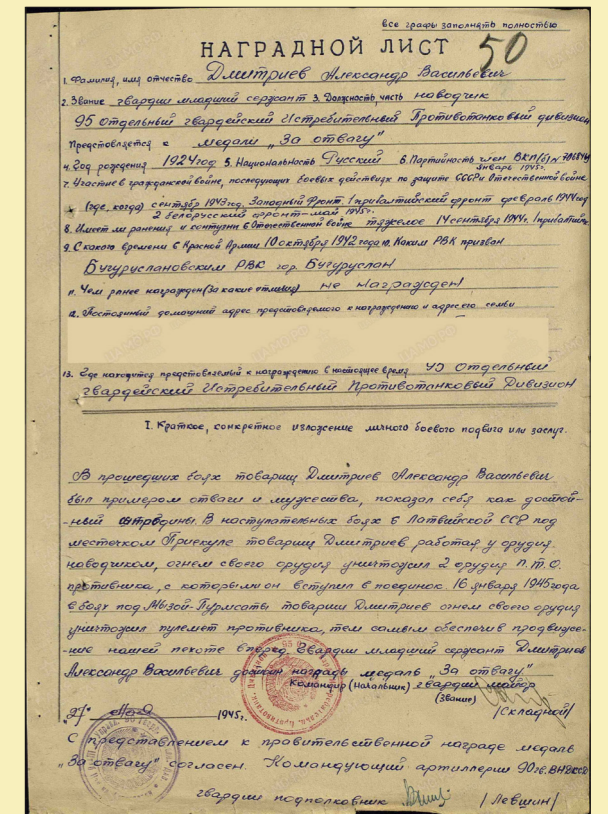 все графы заполнять полностью
НАГРАДНОЙ ЛИСТ 50
1. Фамилия, имя отчество Дмитриев Александр Васильевич
2. Звание гвардии младший сержант 3. Должность, часть наводчик
95 отдельный гвардейский Истребительный Противотанковый дивизион
Представляется к медали „За отвагу"
4. Год рождения 1924 год 5. Национальность Русский 6. Партийность член ВКП(б)
январь 1945г.
7. Участие в гражданской войне, последующих боевых действиях по защите СССР и Отечественной войне
(где, когда) сентябрь 1943 год. Западный Фронт. 1 прибалтийский фронт февраль 1944 год
2 белорусский фронт - май 1945г.
8. Имеет ли ранения и контузии в Отечественной войне тяжелое 14 сентября 1944г. 1 прибалтийск
9. С какого времени в Красной Армии 10 октября 1942 года 10. Каким РВК призван
Бугуруслановским РВК гор. Бугуруслан
11. Чем ранее награжден (За какие отличия) не награжден
12. Постоянный домашний адрес представляемого к награждению и адрес его семьи
13. Где находится представляемый к награждению в настоящее время 95 отдельный
гвардейский Истребительный Противотанковый Дивизион
I. Краткое, конкретное изложение личного боевого подвига или заслуг.
В прошедших боях товарищ Дмитриев Александр Васильевич
был примером отваги и мужества, показал себя как достой-
-ный Родины. В наступательных боях в Латвийской ССР под
местечком Приекуле товарищ Дмитриев работая у орудия
наводчиком, огнем своего орудия уничтожил 2 орудия П.Т.О.
противника, с которыми он вступил в поединок. 16 января 1945 года
в боях под Мызой-Пурмсаты товарищ Дмитриев огнем своего орудия
уничтожил пулемет противника, тем самым обеспечив продвиже-
-ние нашей пехоте вперед. Гвардии младший сержант Дмитриев
Александр Васильевич достоин награды медаль „За отвагу"
Командир (Начальник) гвардии майор
(Звание)
мая 1945г. /Складной/
С представлением к правительственной награде медаль
„За отвагу" согласен. Командующий артиллерии 90 гв.
гвардии подполковник /Левшин/